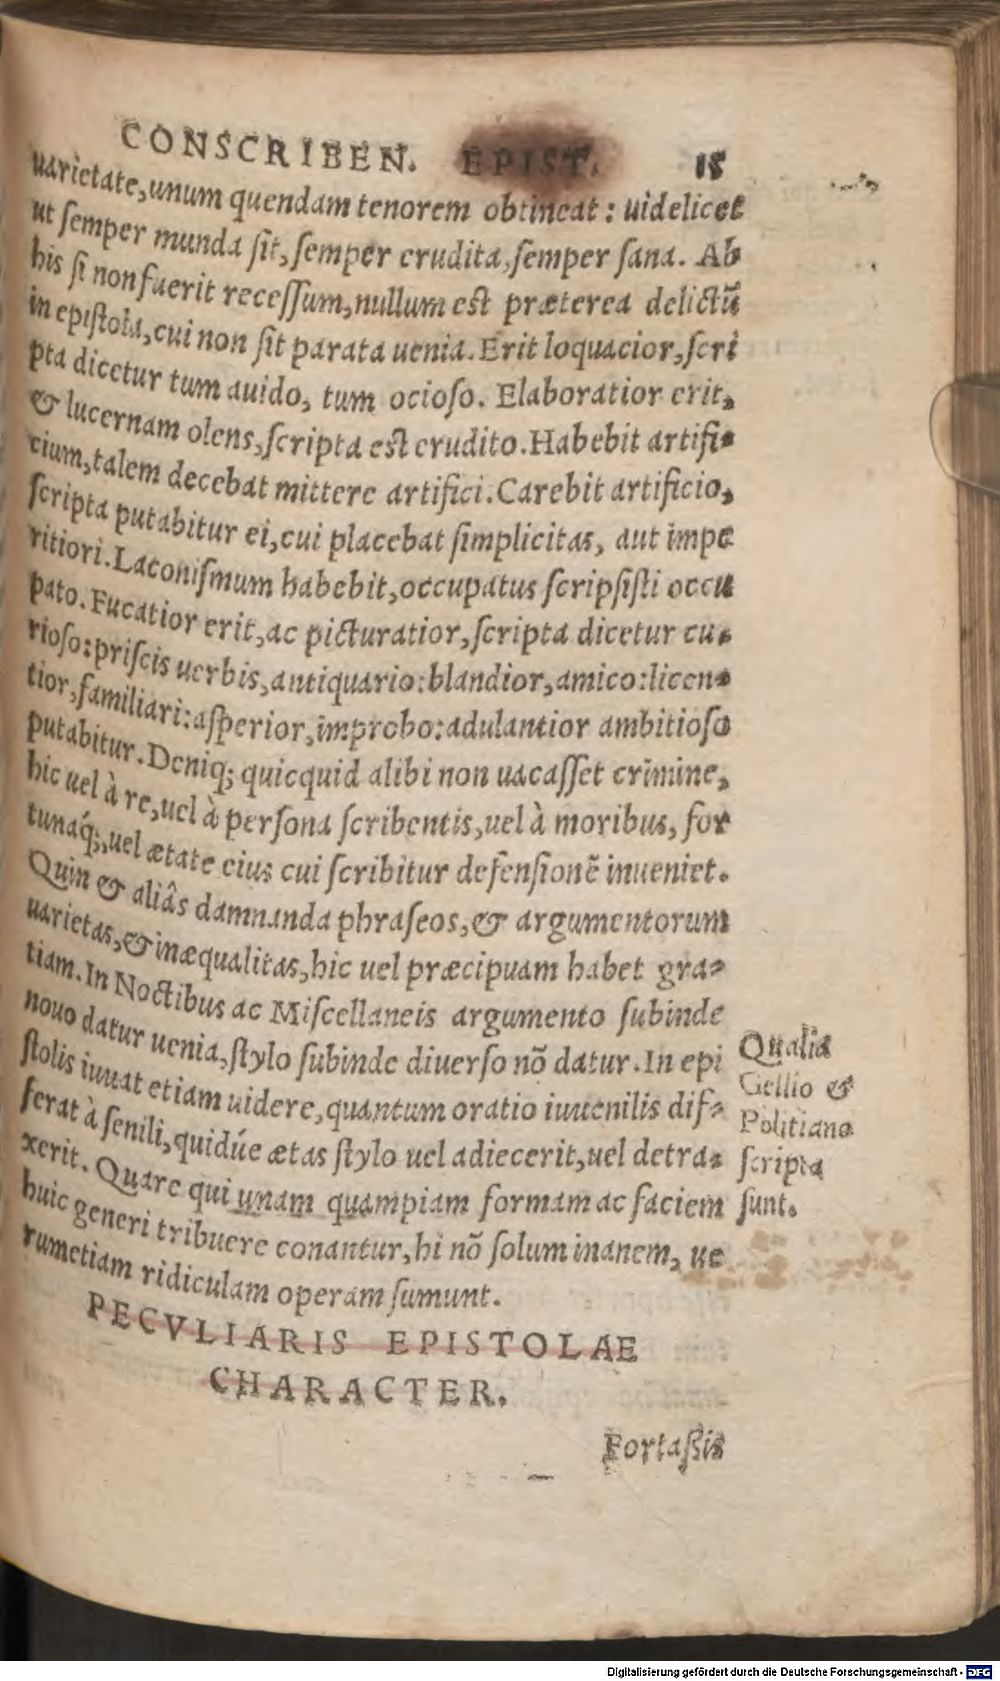 CONSCRIBEN. EPIST. 15
uarietate, unum quendam tenorem obtineat: uidelicet
ut ſemper munda ſit, ſemper erudita, ſemper ſana. Ab
his ſi non fuerit receſſum, nullum est præterea delictũ
in epiſtola, cui non ſit parata uenia. Erit loquacior, ſcri
pta dicetur tum auido, tum ocioſo. Elaboratior erit,
& lucernam olens, ſcripta est erudito. Habebit artifi-
cium, talem decebat mittere artifici. Carebit artificio,
ſcripta putabitur ei, cui placebat ſimplicitas, aut impe
ritiori. Laconiſmum habebit, occupatus ſcripſiſti occu
pato. Fucatior erit, ac picturatior, ſcripta dicetur cu-
rioſo: priſcis uerbis, antiquario: blandior, amico: licen-
tior, familiari: aſperior, improbo: adulantior ambitioſo
putabitur. Deniq; quicquid alibi non uacaſſet crimine,
hic uel à re, uel à perſona ſcribentis, uel à moribus, for
tunaq́;, uel ætate eius cui ſcribitur defenſionẽ inueniet.
Quin & aliâs damnanda phraſeos, & argumentorum
uarietas, & inæqualitas, hic uel præcipuam habet gra-
tiam. In Noctibus ac Miſcellaneis argumento ſubinde
nouo datur uenia, ſtylo ſubinde diuerſo nõ datur. In epi
ſtolis iuuat etiam uidere, quantum oratio iuuenilis dif-
ferat à ſenili, quidúe ætas ſtylo uel adiecerit, uel detra-
xerit. Quare qui unam quampiam formam ac faciem
huic generi tribuere conantur, hi nõ ſolum inanem, ue
rumetiam ridiculam operam ſumunt.
Qualia
Gellio &
Politiano
ſcripta
ſunt.
PECVLIARIS EPISTOLAE
CHARACTER.
Fortaßis
Digitalisierung gefördert durch die Deutsche Forschungsgemeinschaft - DFG